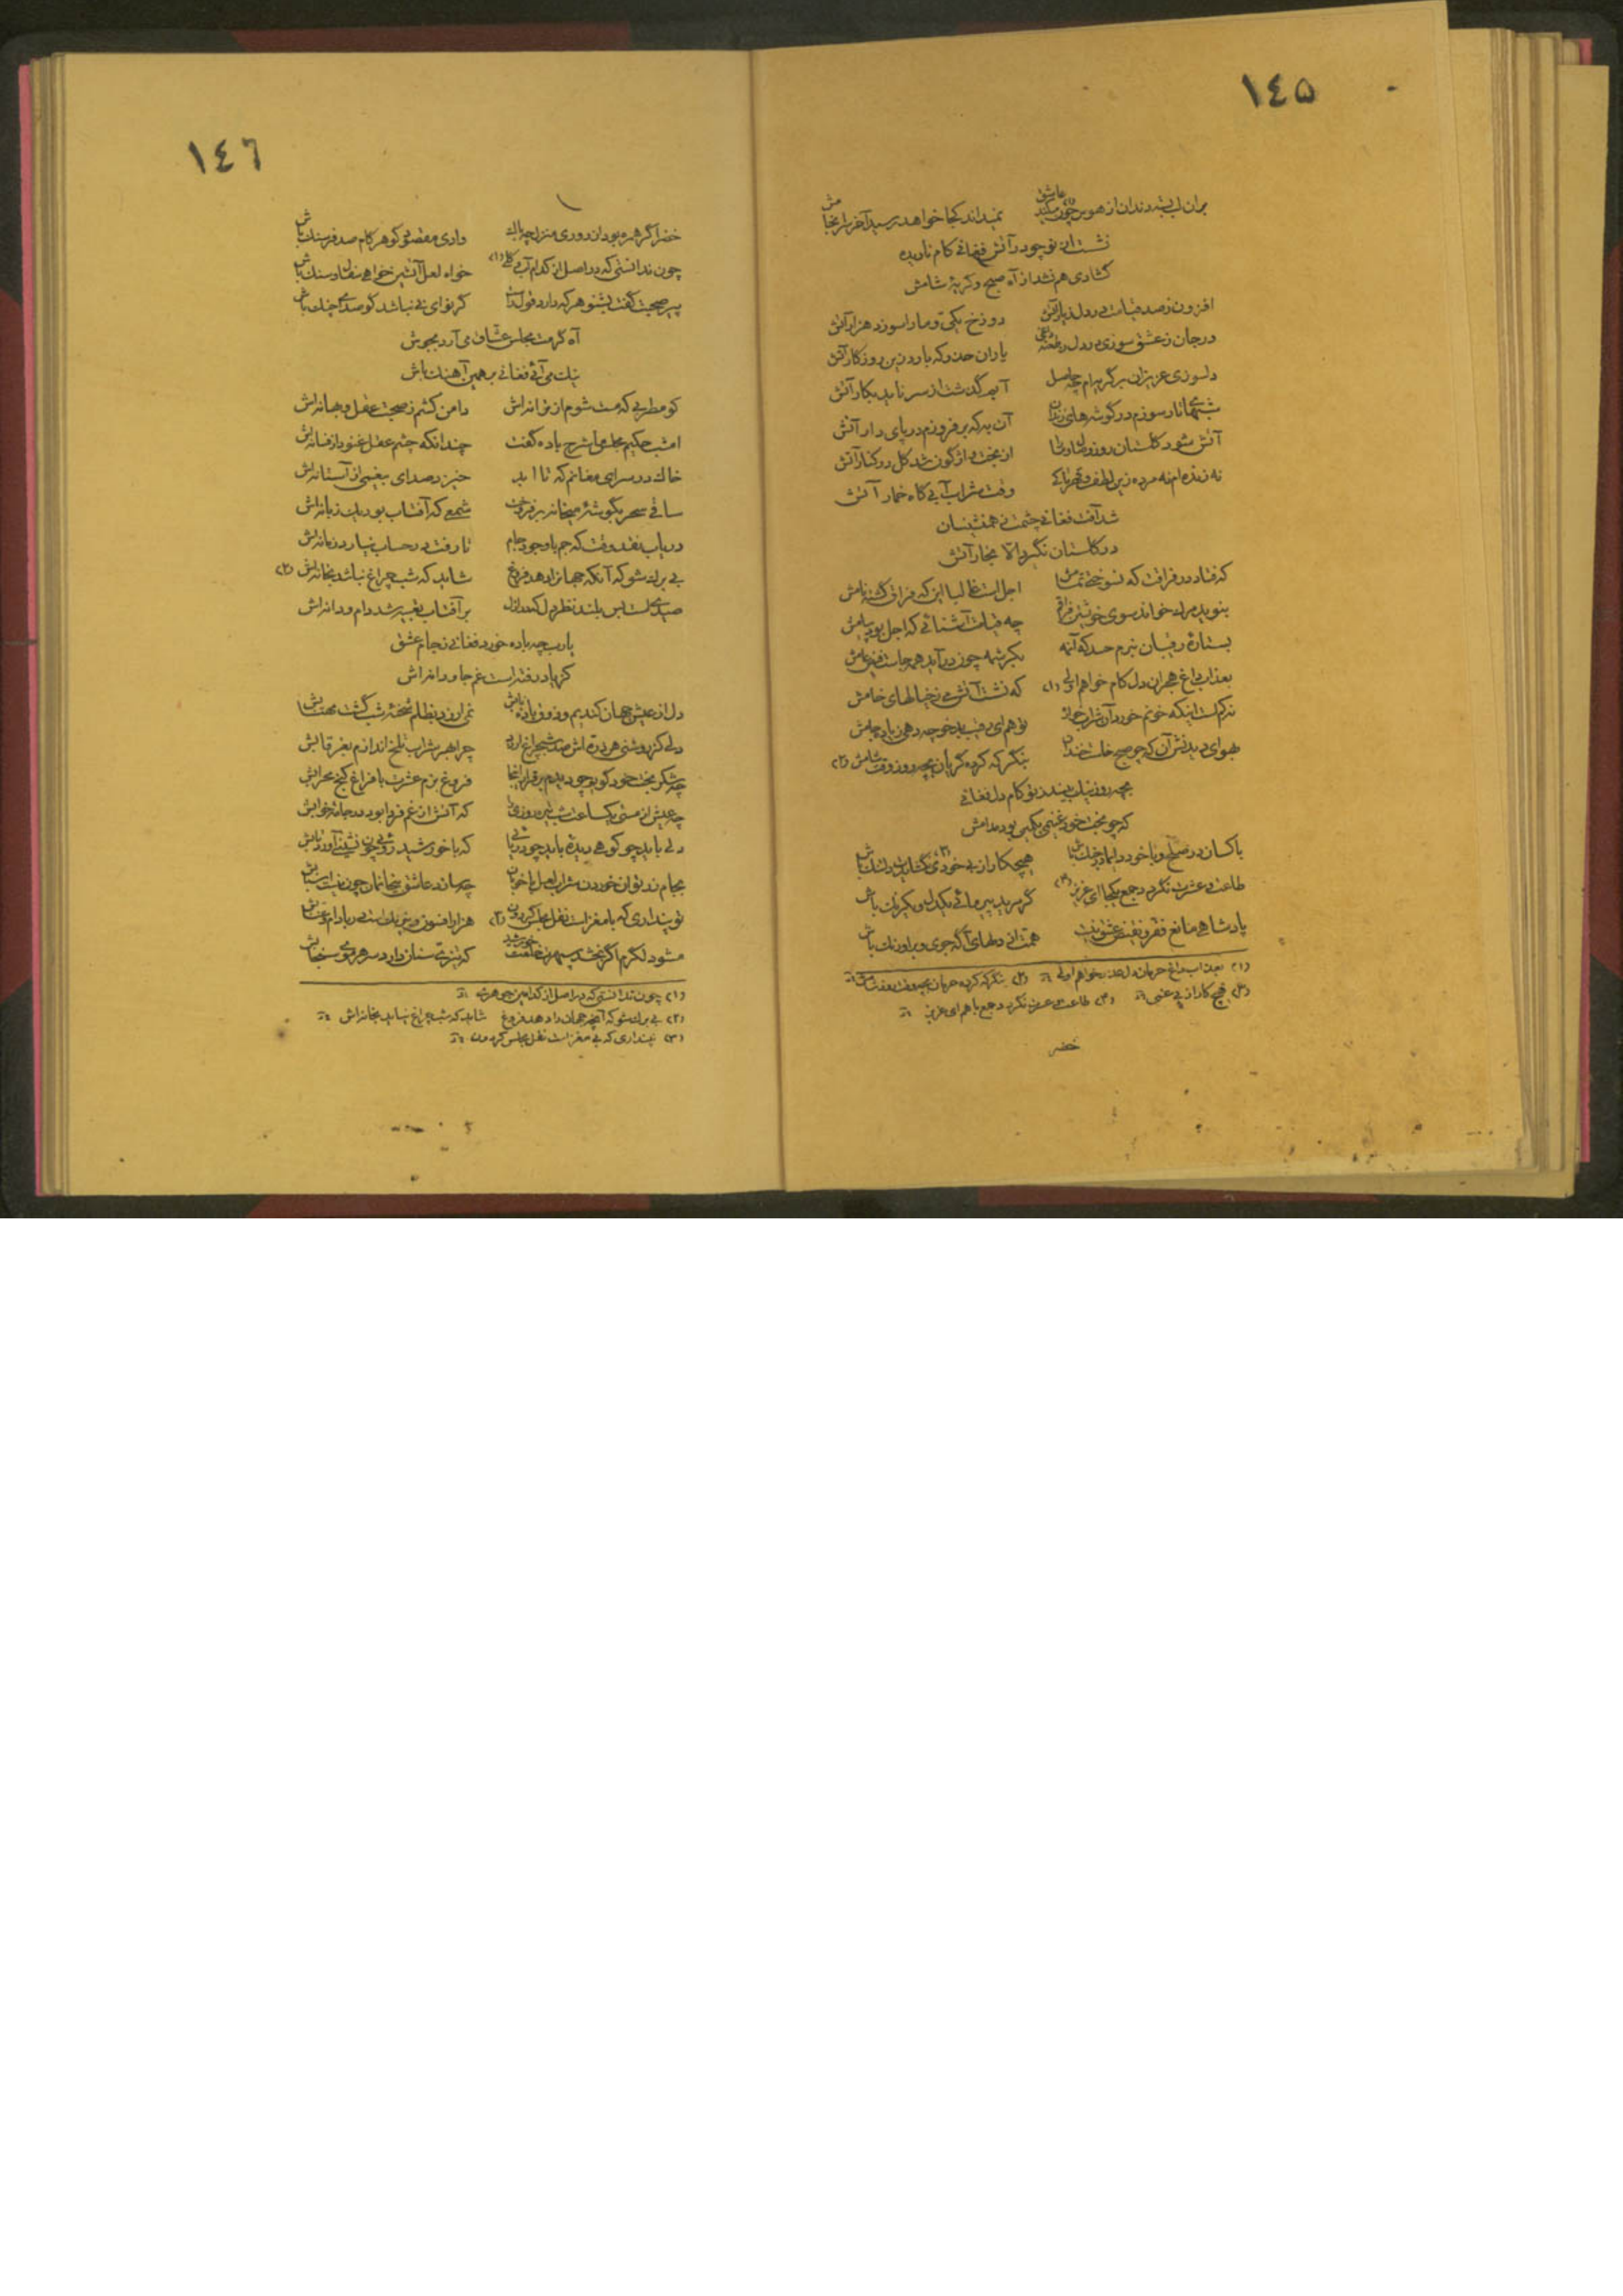 ١٤٥
بران لب بسته دندان از هوس چون میکند عاشق نمیداند کجا خواهد رسید آخر سرانجامش
نشست از تو چو در آتش فغانی کام نادیده
گشادی هم نشد از آه صبح و گریهٔ شامش
افزون ز صد قیامت در دل ز یار آتش دوزخ یکی و ما را سوزد هزار آتش
در جان ز عشق سوزی در دل ز طعنه داغی یاران حذر که بارد زین روزگار آتش
دلسوزی عزیزان بر گریه‌ام چه حاصل آبم گذشت از سر ناید بکار آتش
شبهای تار سوزم در گوشه‌های زندان آن به که برفروزم در پای دار آتش
آتش شود گلستان روز وصال و ما را از بخت واژگون شد گل در کنار آتش
نه زنده‌ام نه مرده زین لطف و قهر تا کی وقت شراب آبی گاه خمار آتش
شد آفت فغانی چشمت ز همنشینان
در گلستان نگیرد الا بخار آتش
که فتاد در فراقت که نسوختی تمامش اجل است غالبا این که فراق گشته نامش
بنوید مرگ خواند سوی خویشتن فراقم چه قیامت آشنائی که اجل بود پیامش
بستارهٔ رقیبان نبرم حسد که آن مه بکرشمه چون درآید همه جاست فیض عامش
بعذاب داغ هجران دل کام خواهم اولی (۱) که نشست آتش می ز خیالهای خامش
نه کم است اینکه خونم خورد آن شراب خواره تو هم ای رقیب بدخو چه دهی بیاد جامش
بهوای دیدنش آن که چو صبح خاست خندان بنگر که کرده گریان بچه روز وقت شامش (۲)
بچه روز نیک بیند ز تو کام دل فغانی
که چو بخت خود غنیمی بکمین بود مدامش
با کسان در صلح و با خود دایما در جنگ باش هیچ کار از بی خودی نگشاید دلتنگ باش
طاعت و عشرت نگردد جمع یکجا ای عزیز (۴) گر مرید پیر مائی یکدل و یکرنگ باش
پادشاهی مانع فقر و نقیض عشق نیست همت از دلهای آگه جوی و بر اورنگ باش
(۱) بعذاب داغ حرمان دل خواهم اولی (۲) بنگر که کرده
(۳) هیچ کار از بی غمی (۴) طاعت و عشرت نگردد جمع با هم ای عزیز
خضر
١٤٦
خضر اگر همره بود از دوری منزل چه باک وادی مقصود گو هر گام صد فرسنگ باش
چون ندانستی که در اصل از کدام آب و گلی (۱) خواه لعل آتشین خواهی سفال و سنگ باش
پیر صحبت گفت بشنو هر که دارد قول راست گر نوای نی نباشد گو صدای چنگ باش
آه گرمت مجلس عشاق می‌آرد بجوش
نیک می‌آئی فغانی بر همین آهنگ باش
کو مطربی که مست شوم از ترانه‌اش دامن کشم ز صحبت عقل و بهانه‌اش
امشب حکیم مجلس ما شرح باده گفت چندانکه چشم عقل غنود از فسانه‌اش
خاک در سرای مغانم که تا ابد خیزد صدای بیغمی از آستانه‌اش
ساقی سحر بگوشهٔ میخانه برفروخت شمعی که آفتاب بود یک زبانه‌اش
دریاب نقد وقت که جم با وجود جام تا رفت در حساب نیارد زمانه‌اش
بی برگ شو که آنکه جهانرا دهد فروغ شاید که شب چراغ نباشد بخانه‌اش (۲)
صیدیست بس بلند نظر دل که در ازل بر آفتاب تعبیه شد دام و دانه‌اش
یارب چه باده خورد فغانی ز جام عشق
کز یاد رفته است غم جاودانه‌اش
دل از عیش جهان کندیم و ذوق بادهٔ نابش نمی‌ارزد بظلم شحنهٔ شب گشت مهتابش
دلی کز روشنی هر ذره‌اش صد شبچراغ ارزد چرا بهر شراب تلخ اندازم بغرقابش
چه شکر بخت خود گویم چو دیدم برقرار آنجا فروغ بزم عشرت با فراغ کنج محرابش
چه عیش از مستی یکساعت شب تیره روزی را که آتش از غم فردا بود در جامهٔ خوابش
دلی باید چو کوه و دیده باید چو دریائی که با خورشیدروئی چون نشیند آورد تابش
بجام زر توان خوردن شراب لعل با خوبان چه سازد عاشق بیخانمان چون نیست اسبابش
تو پنداری که با مغز است نقل مجلس گردون (۳) هزار افسون و نیرنگ است در بادام و عنابش
مشو دلگرم اگر بخشد سپهرت خلعت خورشید که تیزی سنان دارد سر هر موی سنجابش
(۱) چون ندانستی که در اصل از کدامین جوهری
(۲) بی برگ شو که آنچه جهان را دهد فروغ شاید که شب چراغ نیاید بخانه‌اش
(۳) نپنداری که بی مغز است نقل مجلس گردون